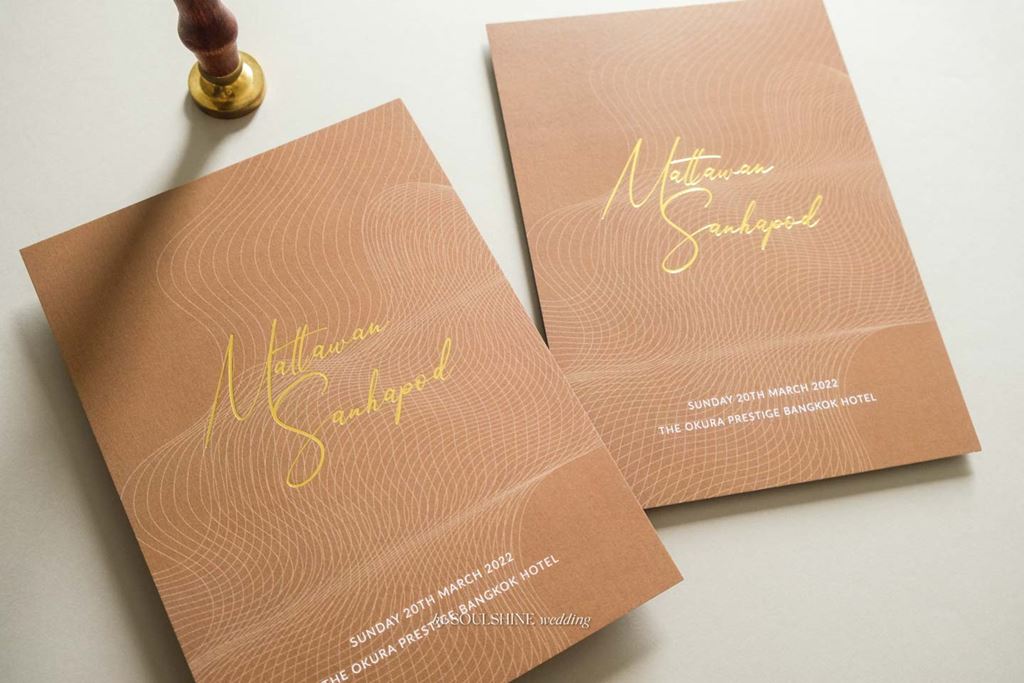 Mattawan
Sanhapod
SUNDAY 20TH MARCH 2022
THE OKURA PRESTIGE BANGKOK HOTEL
Mattawan
Sanhapod
SUNDAY 20TH MARCH 2022
THE OKURA PRESTIGE BANGKOK HOTEL
SOULSHINE wedding